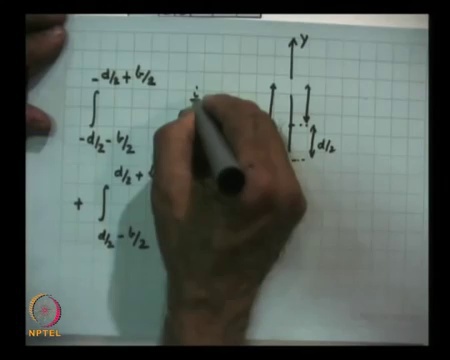 -d/2 + b/2
∫
-d/2 - b/2
d/2 +
+ ∫
d/2 - b/2
i
Y
d/2
NPTEL